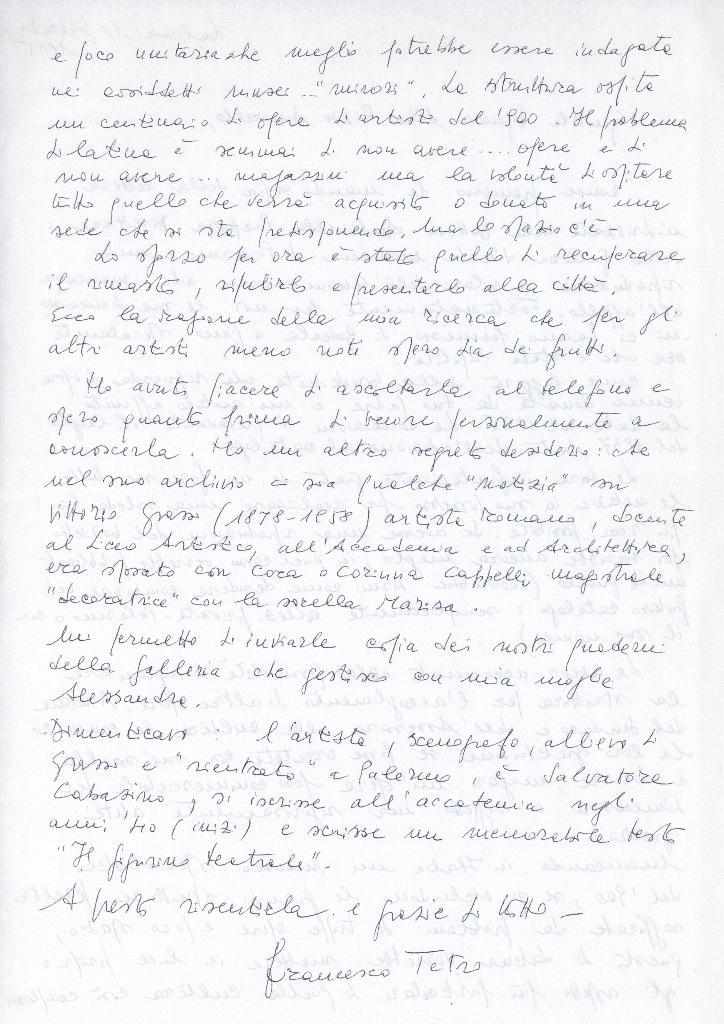 e poco unitaria che meglio potrebbe essere indagata
nei cosiddetti musei ... "minori". La struttura ospita
un centinaio di opere di artisti del '900. Il problema
di Latina è semmai di non avere .... opere e di
non avere ... magazzini ma la volontà di ospitare
tutto quello che verrà acquisito o donato in una
sede che si sta predisponendo, ma lo spazio c'è -
Lo sforzo per ora è stato quello di recuperare
il rimasto, ripulirlo e presentarlo alla città.
Ecco la ragione della mia ricerca che per gli
altri artisti meno noti spero dia dei frutti.
Ho avuto piacere di ascoltarla al telefono e
spero quanto prima di venire personalmente a
conoscerla. Ho un altro segreto desiderio: che
nel suo archivio ci sia qualche "notizia" su
Vittorio Grassi (1878-1958) artista romano, docente
al Liceo Artistico, all'Accademia e ad Architettura,
era sposato con Coca o Corinna Cappelli magistrale
"decoratrice" con la sorella Marisa.
Mi permetto di inviarle copia dei nostri quaderni
della Galleria che gestisco con mia moglie
Alessandra.
Dimenticavo: l'artista, scenografo, allievo di
Grassi e "rientrato" a Palermo, è Salvatore
Cabasino, si iscrisse all'accademia negli
anni '40 (inizi) e scrisse un memorabile testo
"Il figurino teatrale".
A presto risentirla e grazie di tutto -
Francesco Tetro